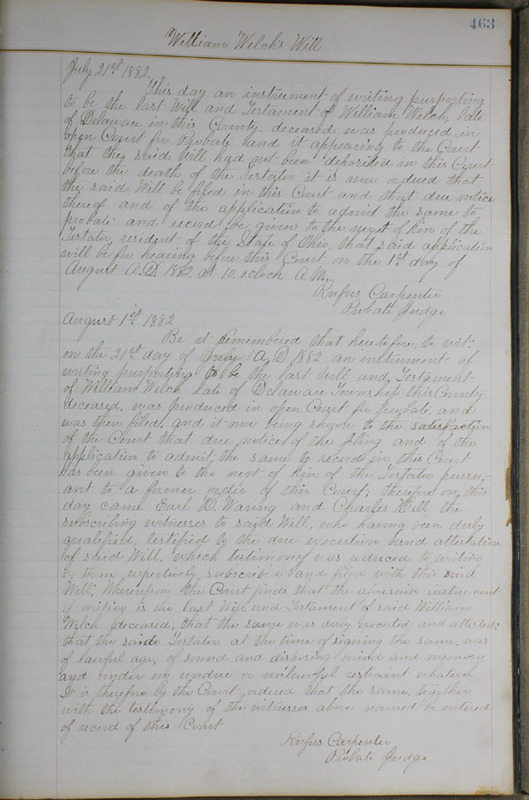 463
William Welch's Will
July 21st 1882
This day an instrument of writing purporting
to be the last Will and Testament of William Welch, late
of Delaware in this County deceased was produced in
open Court for Probate and it appearing to the Court
that the said Will had not been deposited in this Court
before the death of the Testator it is now ordered that
the said Will be filed in this Court and that due notice
thereof and of the application to admit the same to
probate and record be given to the next of kin of the
Testator, resident of the State of Ohio, that said application
will be for hearing before this Court on the 1st day of
August A.D. 1882 at 10 oclock A.M.
Rufus Carpenter
Probate Judge
August 1st 1882
Be it Remembered that heretofore, to wit:
on the 21st day of July A.D 1882 an instrument of
writing purporting to be the last Will and Testament
of William Welch late of Delaware Township this County
deceased, was produced in open Court for probate and
was then filed, and it now being shown to the satisfaction
of the Court that due notice of the filing and of the
application to admit the same to record in this Court
has been given to the next of kin of the Testator pursu-
ant to a former order of this Court; therefore on this
day came Earl D. Waring and Charles Hill the
subscribing witnesses to said Will, who having been duly
qualified, testified to the due execution and attestation
of said Will, which testimony was reduced to writing
by them respectively subscribed and filed with the said
Will; whereupon the Court finds that the aforesaid instrument
of writing is the last Will and Testament of said William
Welch deceased, that the same was duly executed and attested;
that the said Testator at the time of signing the same, was
of lawful age, of sound and disposing mind and memory
and under no undue or unlawful restraint whatever.
It is therefore by the Court ordered that the same, together
with the testimony of the witnesses above named be entered
of record of this Court
Rufus Carpenter
Probate Judge